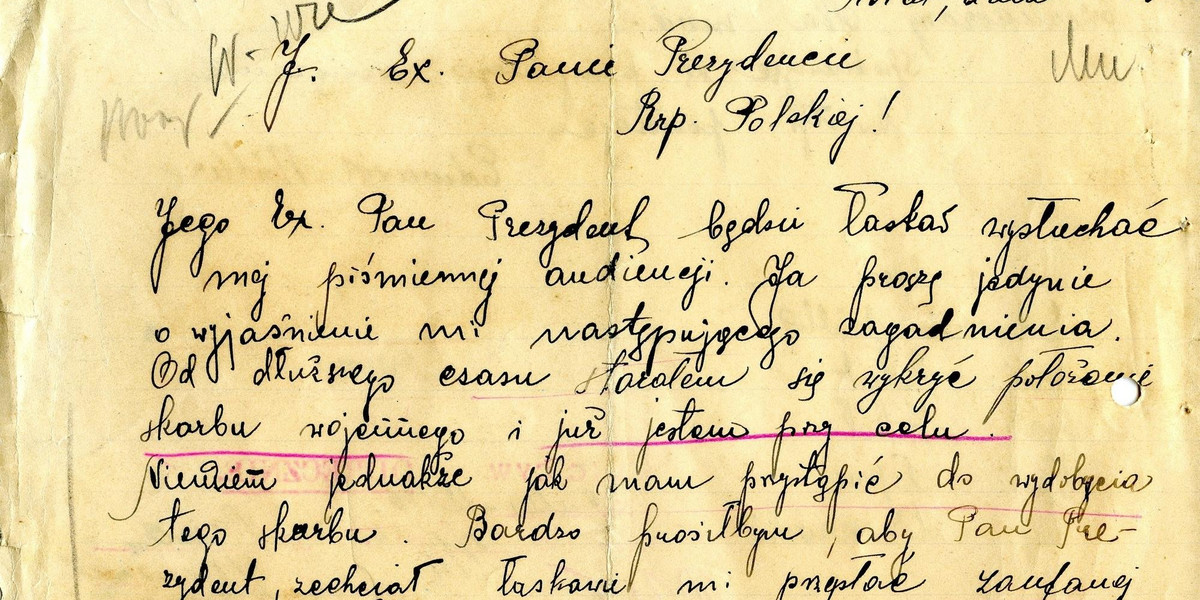 J. Ex. Panie Prezydencie
Rzp. Polskiej!
Jego Ex. Pan Prezydent będzie łaskaw wysłuchać
mej piśmiennej audiencji. Ja proszę jedynie
o wyjaśnienie mi następującego zagadnienia.
Od dłuższego czasu starałem się wykryć położenie
skarbu wojennego i już jestem przy celu.
Niewiem jednakże jak mam przystąpić do wydobycia
tego skarbu. Bardzo prosiłbym, aby Pan Pre-
zydent, zechciał łaskawie mi przysłać zaufanej